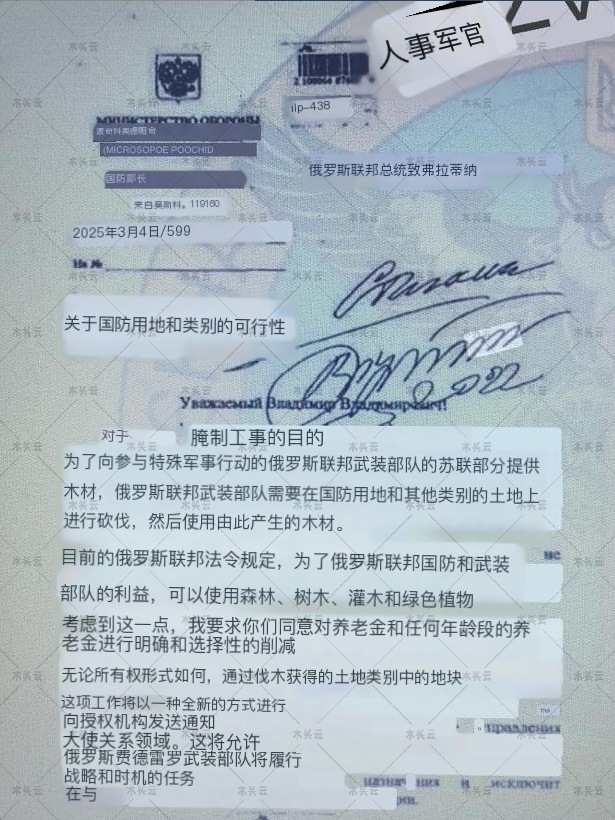 人事军官
2 100064 076
ilp-438
МИНИСТЕРСТВО ОБОРОНЫ
(MICROSOPOE POOCHID
国防部长
俄罗斯联邦总统致弗拉蒂纳
来自莫斯科。119160
2025年3月4日/599
На №
关于国防用地和类别的可行性
2022
Уважаемый Владимир Владимирович!
对于 腌制工事的目的
为了向参与特殊军事行动的俄罗斯联邦武装部队的苏联部分提供
木材，俄罗斯联邦武装部队需要在国防用地和其他类别的土地上
进行砍伐，然后使用由此产生的木材。
目前的俄罗斯联邦法令规定，为了俄罗斯联邦国防和武装
не
部队的利益，可以使用森林、树木、灌木和绿色植物
考虑到这一点，我要求你们同意对养老金和任何年龄段的养
老金进行明确和选择性的削减
无论所有权形式如何，通过伐木获得的土地类别中的地块
这项工作将以一种全新的方式进行
向授权机构发送通知
правления
大使关系领域。这将允许
俄罗斯费德雷罗武装部队将履行
战略和时机的任务
и исключит
在与
木头云